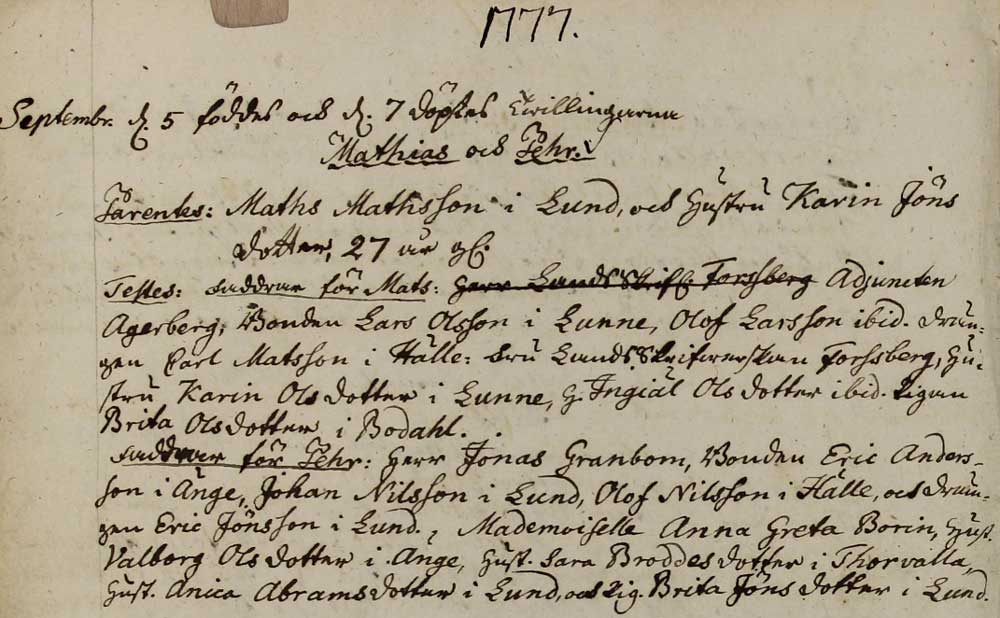 1777.
Septembr. d. 5 föddes och d. 7 döptes Twillingarna
Mathias och Pehr.
Parentes: Maths Mathsson i Lund, och Hustru Karin Jöns
dotter, 27 år gl.
Testes: Faddrar för Mats: Herr Lands Skrif. Forsberg Adjuncten
Agerberg, Bonden Lars Olsson i Lunne, Olof Larsson ibid. Drän-
gen Carl Matsson i Hälle: Fru Lands Skrifwerskan Forssberg, Hu-
stru Karin Olsdotter i Lunne, H. Ingiäl Olsdotter ibid. Pigan
Brita Olsdotter i Bodahl.
Faddrar för Pehr: Herr Jonas Granbom, Bonden Eric Anders-
son i Änge, Johan Nilsson i Lund, Olof Nilsson i Hälle, och Drän-
gen Eric Jönsson i Lund., Mademoiselle Anna Greta Borin, Hust.
Valborg Olsdotter i Ange, Hust. Sara Broddesdotter i Thorvalla,
Hust. Anica Abramsdotter i Lund, och Pig. Brita Jönsdotter i Lund.